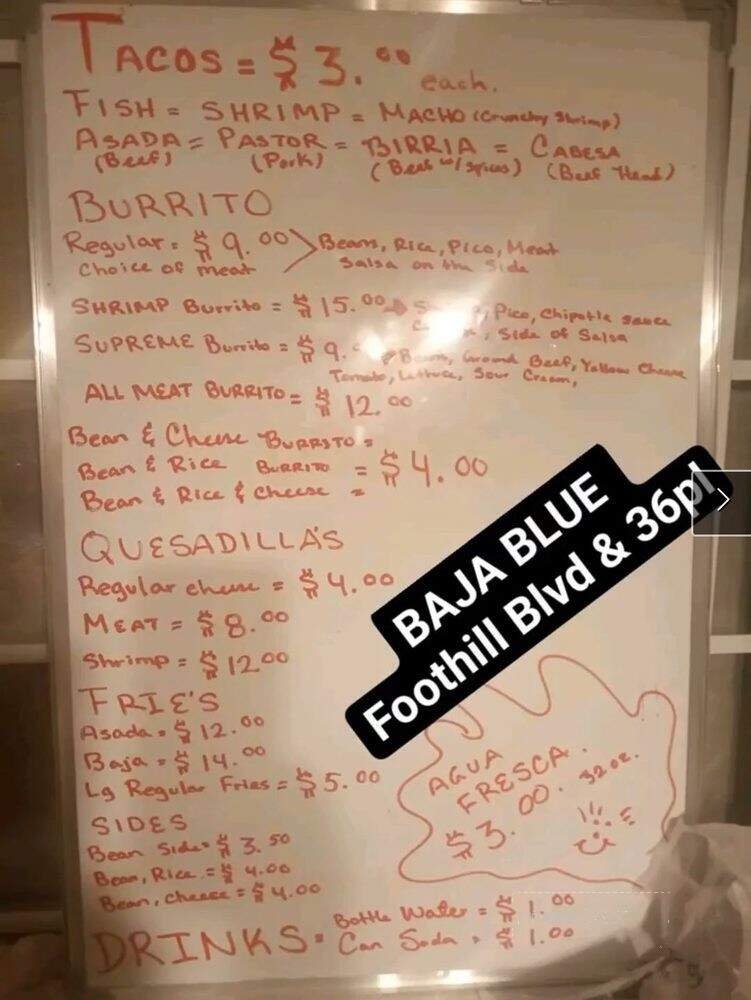 TACOS = $3.00 each.
FISH = SHRIMP = MACHO (Crunchy Shrimp)
ASADA = PASTOR = BIRRIA = CABESA
(Beef) (Pork) (Beef w/spices) (Beef Head)
BURRITO
Regular = $9.00 > Beans, Rice, Pico, Meat
Choice of meat Salsa on the Side
SHRIMP Burrito = $15.00 Pico, Chipotle sauce
Side of Salsa
SUPREME Burrito = $9. Beans, Ground Beef, Yellow Cheese
Tomato, Lettuce, Sour Cream,
ALL MEAT BURRITO = $12.00
Bean & Cheese BURRITO =
Bean & Rice BURRITO = $4.00
Bean & Rice & Cheese =
QUESADILLA'S
Regular cheese = $4.00
MEAT = $8.00
Shrimp = $12.00
FRIE'S
Asada = $12.00
Baja = $14.00
Lg Regular Fries = $5.00
SIDES
Bean Side = $3.50
Bean, Rice = $4.00
Bean, cheese = $4.00
DRINKS = Bottle Water = $1.00
Can Soda = $1.00
AGUA
FRESCA.
$3.00. 32oz.
BAJA BLUE
Foothill Blvd & 36pl